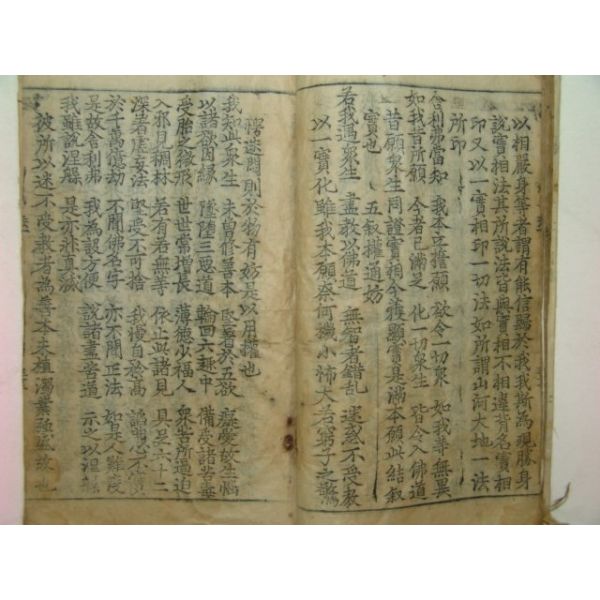 以相嚴身等者謂有能信歸於我我斯爲現勝身
說實相法其所說法皆與實相不相違背名實相
印又以一實相印一切法如所謂山河大地一法
所印
舍利弗當知 我本立誓願 欲令一切衆 如我等無異
如我昔所願 今者已滿足 化一切衆生 皆令入佛道
昔願衆生同證實相今獲顯實是滿本願此結叙
實也 五叙權適妨
若我遇衆生 盡教以佛道 無智者錯亂 迷惑不受教
以一實化雖我本願奈何機小怖大若窮子之驚
愕迷悶則於物有妨是以用權也
我知此衆生 未曾修善本 堅著於五欲 癡愛故生惱
以諸欲因緣 墜墮三惡道 輪回六趣中 備受諸苦毒
受胎之微形 世世常增長 薄德少福人 衆苦所逼迫
入邪見稠林 若有若無等 依止此諸見 具足六十二
深著虛妄法 堅受不可捨 我慢自矜高 諂曲心不實
於千萬億劫 不聞佛名字 亦不聞正法 如是人難度
是故舍利弗 我爲設方便 說諸盡苦道 示之以涅槃
我雖說涅槃 是亦非眞滅
彼所以迷不受教者爲善本未植濁業強盛故也